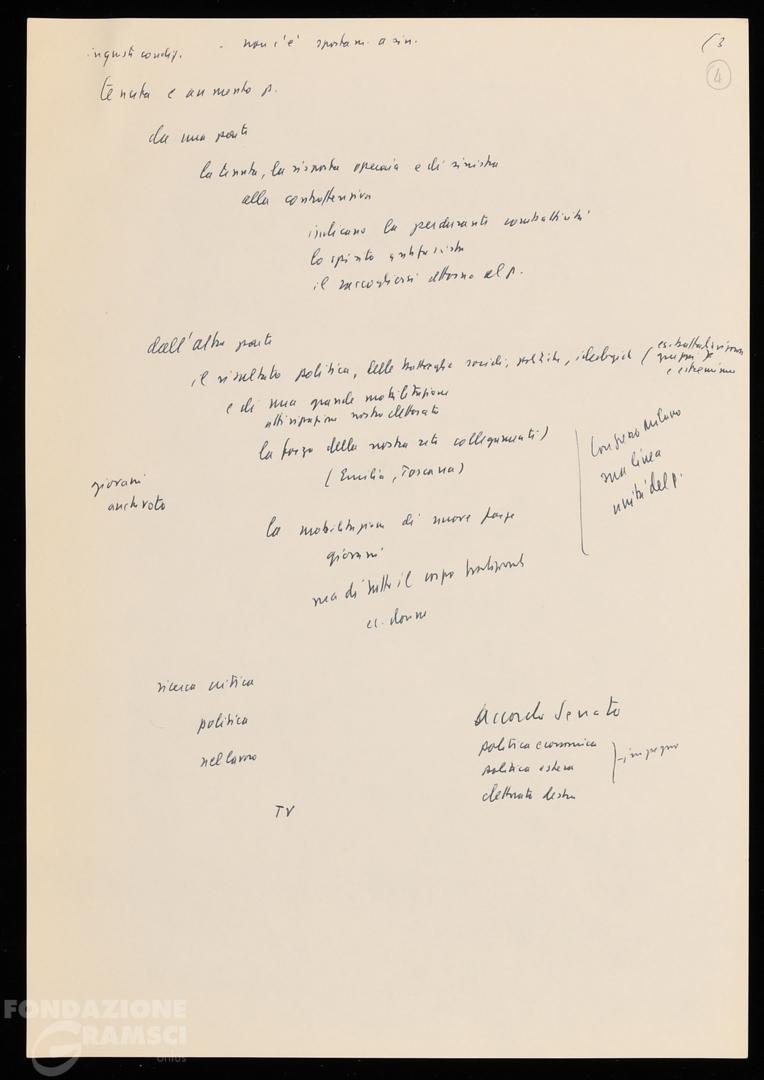 non c'è spostam. a sin.
(3
4
tenuta e aumento p.
da una parte
la tenuta, la risposta operaia e di sinistra
alla controffensiva
indicano la perdurante combattività
lo spirito antifascista
il raccogliersi attorno al p.
dall'altra parte
il risultato politica, delle battaglie sociali, politiche, ideologiche (
gruppi
e estremismo
e di una grande mobilitazione
nostro elettorato
la forza della nostra rete collegamenti)
(Emilia, Toscana)
Congresso Milano
sua linea
unità del p.
giovani
anche voto
la mobilitazione di nuove forze
giovani
ma di tutto il corpo
es. donne
ricerca critica
politica
nel lavoro
Accordo Senato
politica economica
politica estera
impegno
elettorato destra
TV
FONDAZIONE
GRAMSCI
onlus